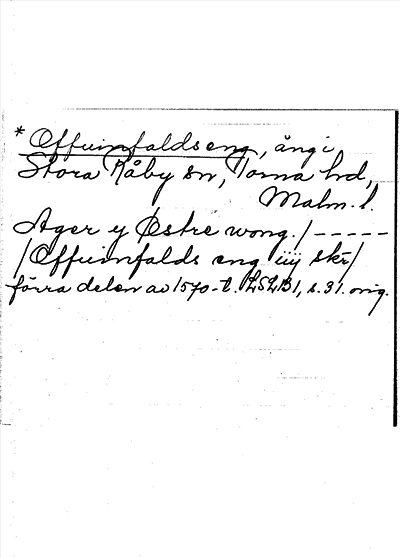 * Offuinfaldseng, äng i
Stora Råby sn, Torna hd,
Malm. l.
Ager y Østre wong. / - - - - -
/ Offuinfalds eng iiij skr /
förra delen av 1570-t. LSLB1, s. 31. orig.